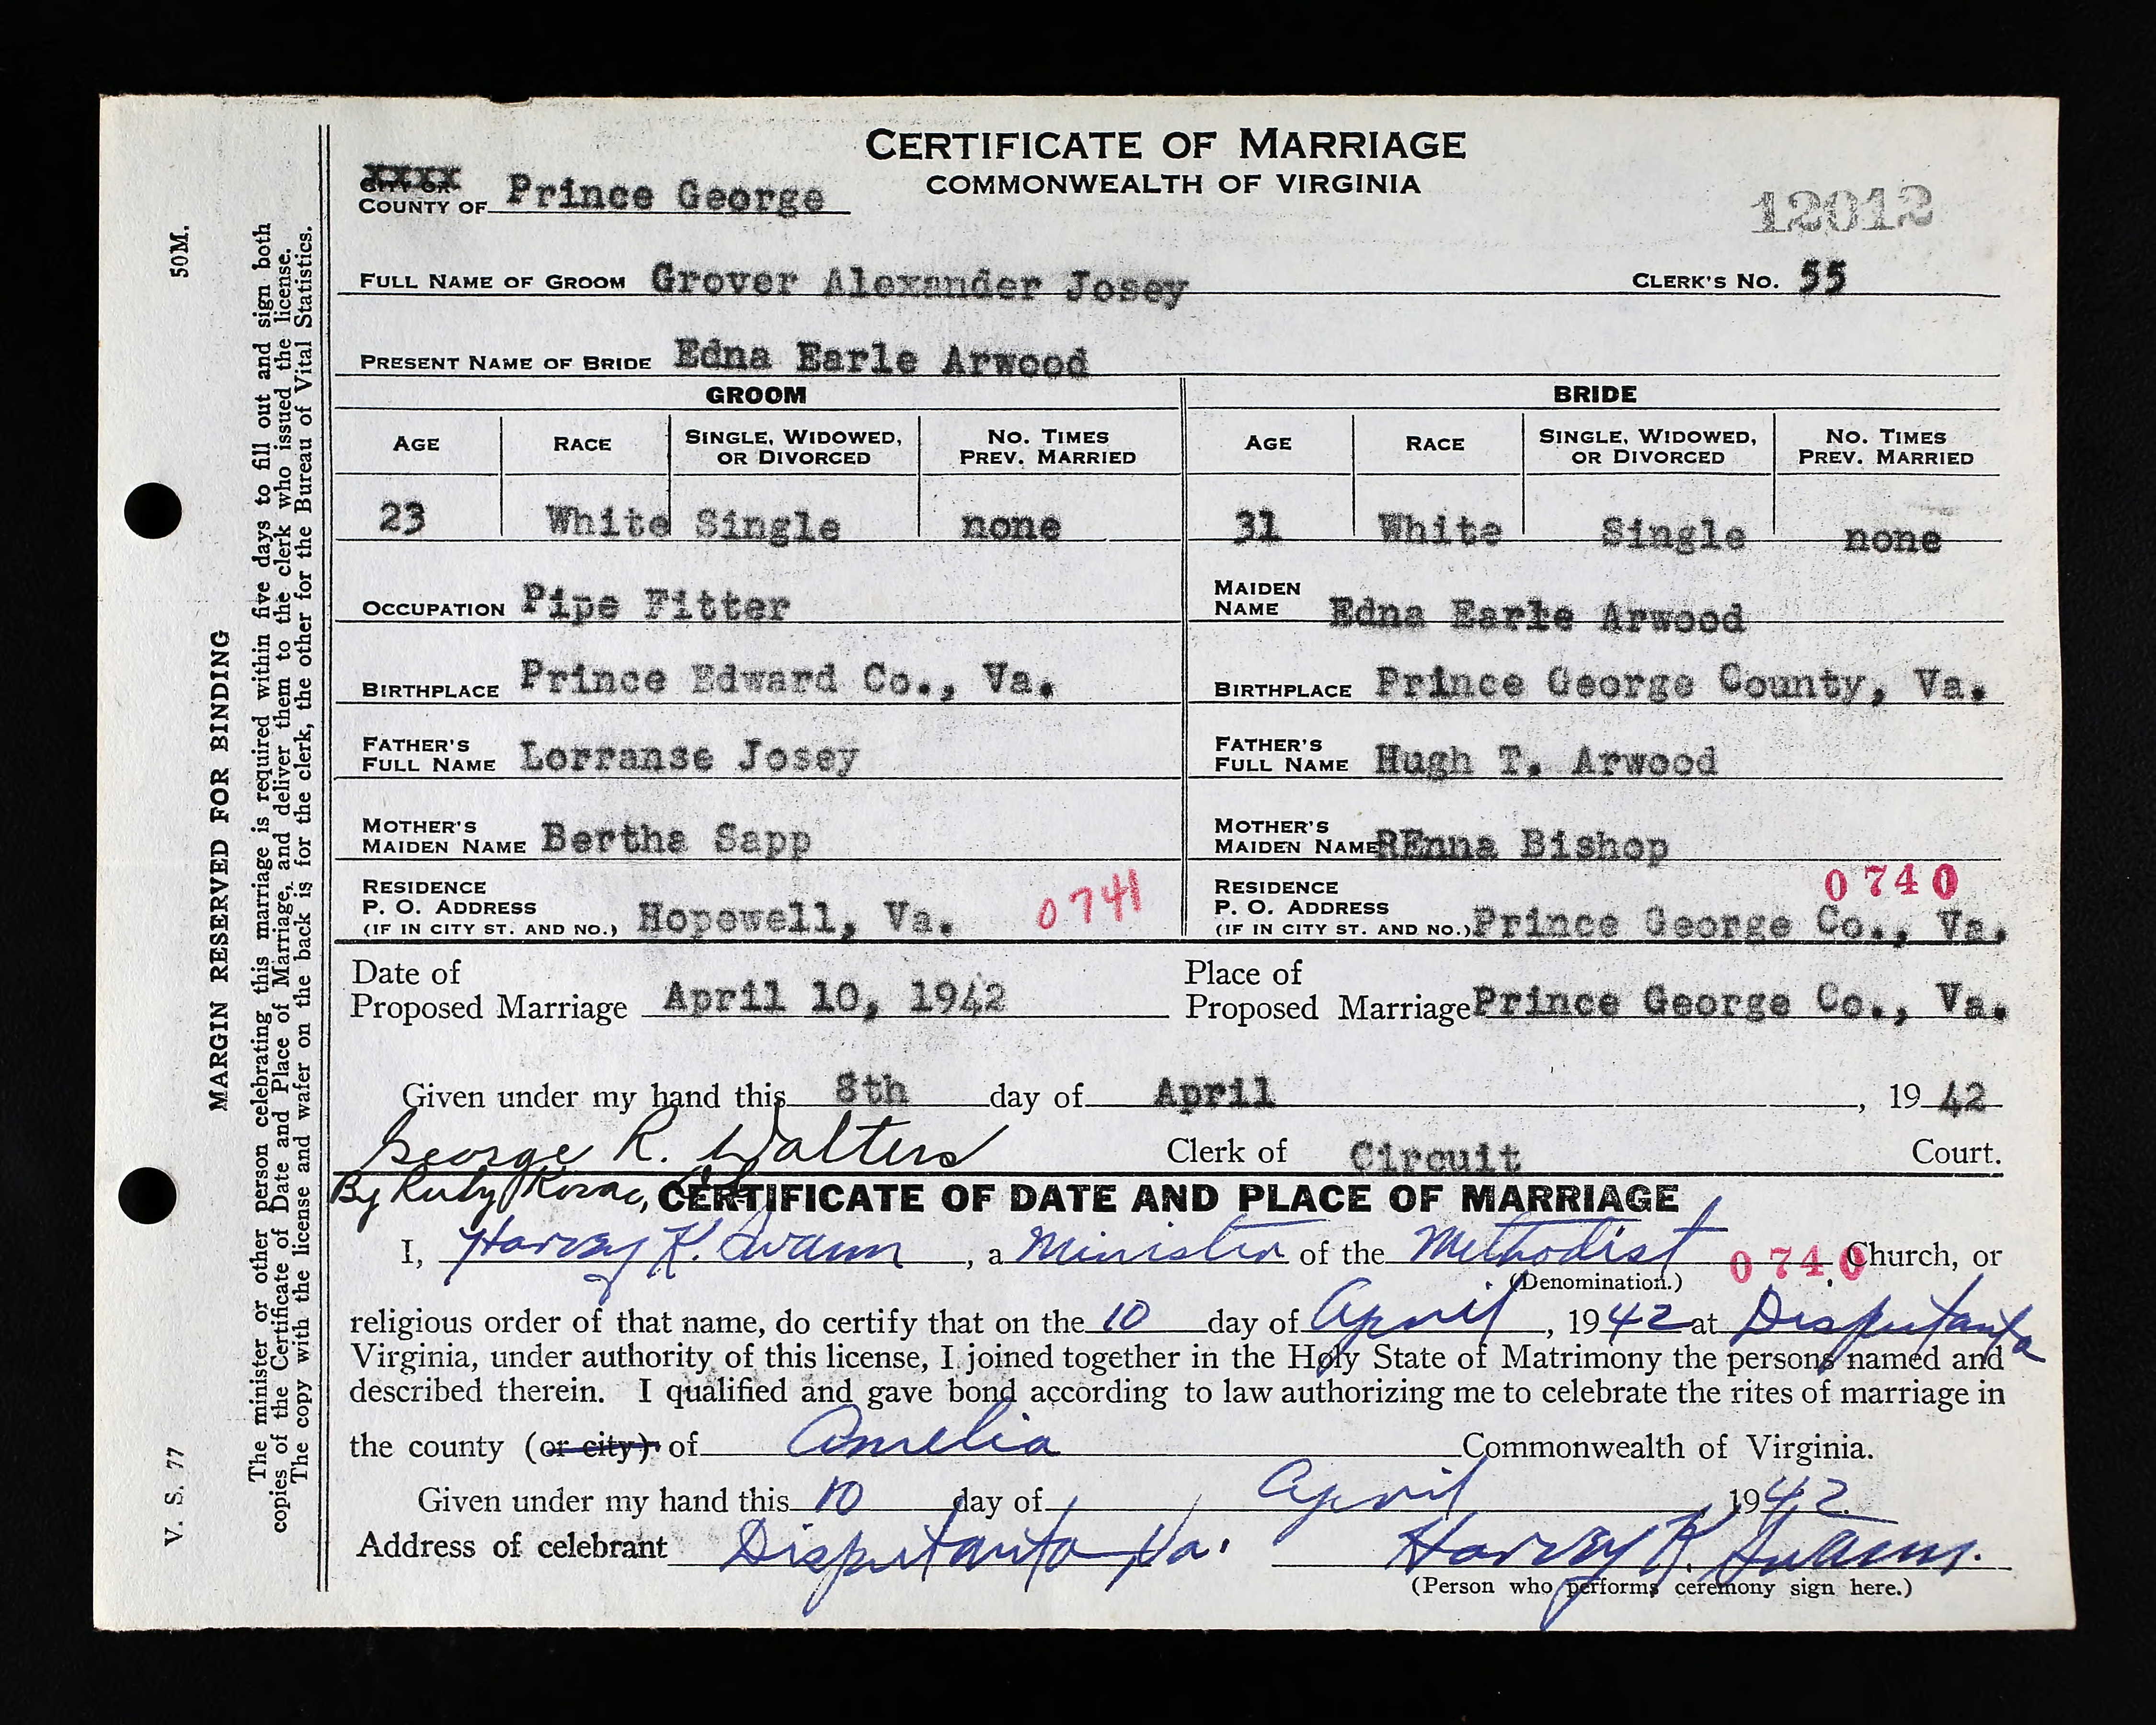 CERTIFICATE OF MARRIAGE
COMMONWEALTH OF VIRGINIA
XXXX
CITY OR
COUNTY OF Prince George
12012
FULL NAME OF GROOM Grover Alexander Josey CLERK'S NO. 55
PRESENT NAME OF BRIDE Edna Earle Arwood
GROOM BRIDE
AGE RACE SINGLE, WIDOWED, OR DIVORCED NO. TIMES PREV. MARRIED AGE RACE SINGLE, WIDOWED, OR DIVORCED NO. TIMES PREV. MARRIED
23 White Single none 31 White Single none
OCCUPATION Pipe Fitter MAIDEN NAME Edna Earle Arwood
BIRTHPLACE Prince Edward Co., Va. BIRTHPLACE Prince George County, Va.
FATHER'S FULL NAME Lorranse Josey FATHER'S FULL NAME Hugh T. Arwood
MOTHER'S MAIDEN NAME Bertha Sapp MOTHER'S MAIDEN NAME REnna Bishop
RESIDENCE P. O. ADDRESS (IF IN CITY ST. AND NO.) Hopewell, Va. 0741 RESIDENCE P. O. ADDRESS (IF IN CITY ST. AND NO.) Prince George Co., Va. 0740
Date of Proposed Marriage April 10, 1942 Place of Proposed Marriage Prince George Co., Va.
Given under my hand this 8th day of April, 1942
George R. Walters Clerk of Circuit Court.
By Ruby
CERTIFICATE OF DATE AND PLACE OF MARRIAGE
I, Harvey K. Swann, a Minister of the Methodist 0740 Church, or
(Denomination.)
religious order of that name, do certify that on the 10 day of April, 1942 at Disputanta
Virginia, under authority of this license, I joined together in the Holy State of Matrimony the persons named and
described therein. I qualified and gave bond according to law authorizing me to celebrate the rites of marriage in
the county (or city) of Amelia Commonwealth of Virginia.
Given under my hand this 10 day of April, 1942.
Address of celebrant Disputanta Va. Harvey K. Swann.
(Person who performs ceremony sign here.)
V. S. 77 50M.
MARGIN RESERVED FOR BINDING
The minister or other person celebrating this marriage is required within five days to fill out and sign both
copies of the Certificate of Date and Place of Marriage, and deliver them to the clerk who issued the license.
The copy with the license and wafer on the back is for the clerk, the other for the Bureau of Vital Statistics.